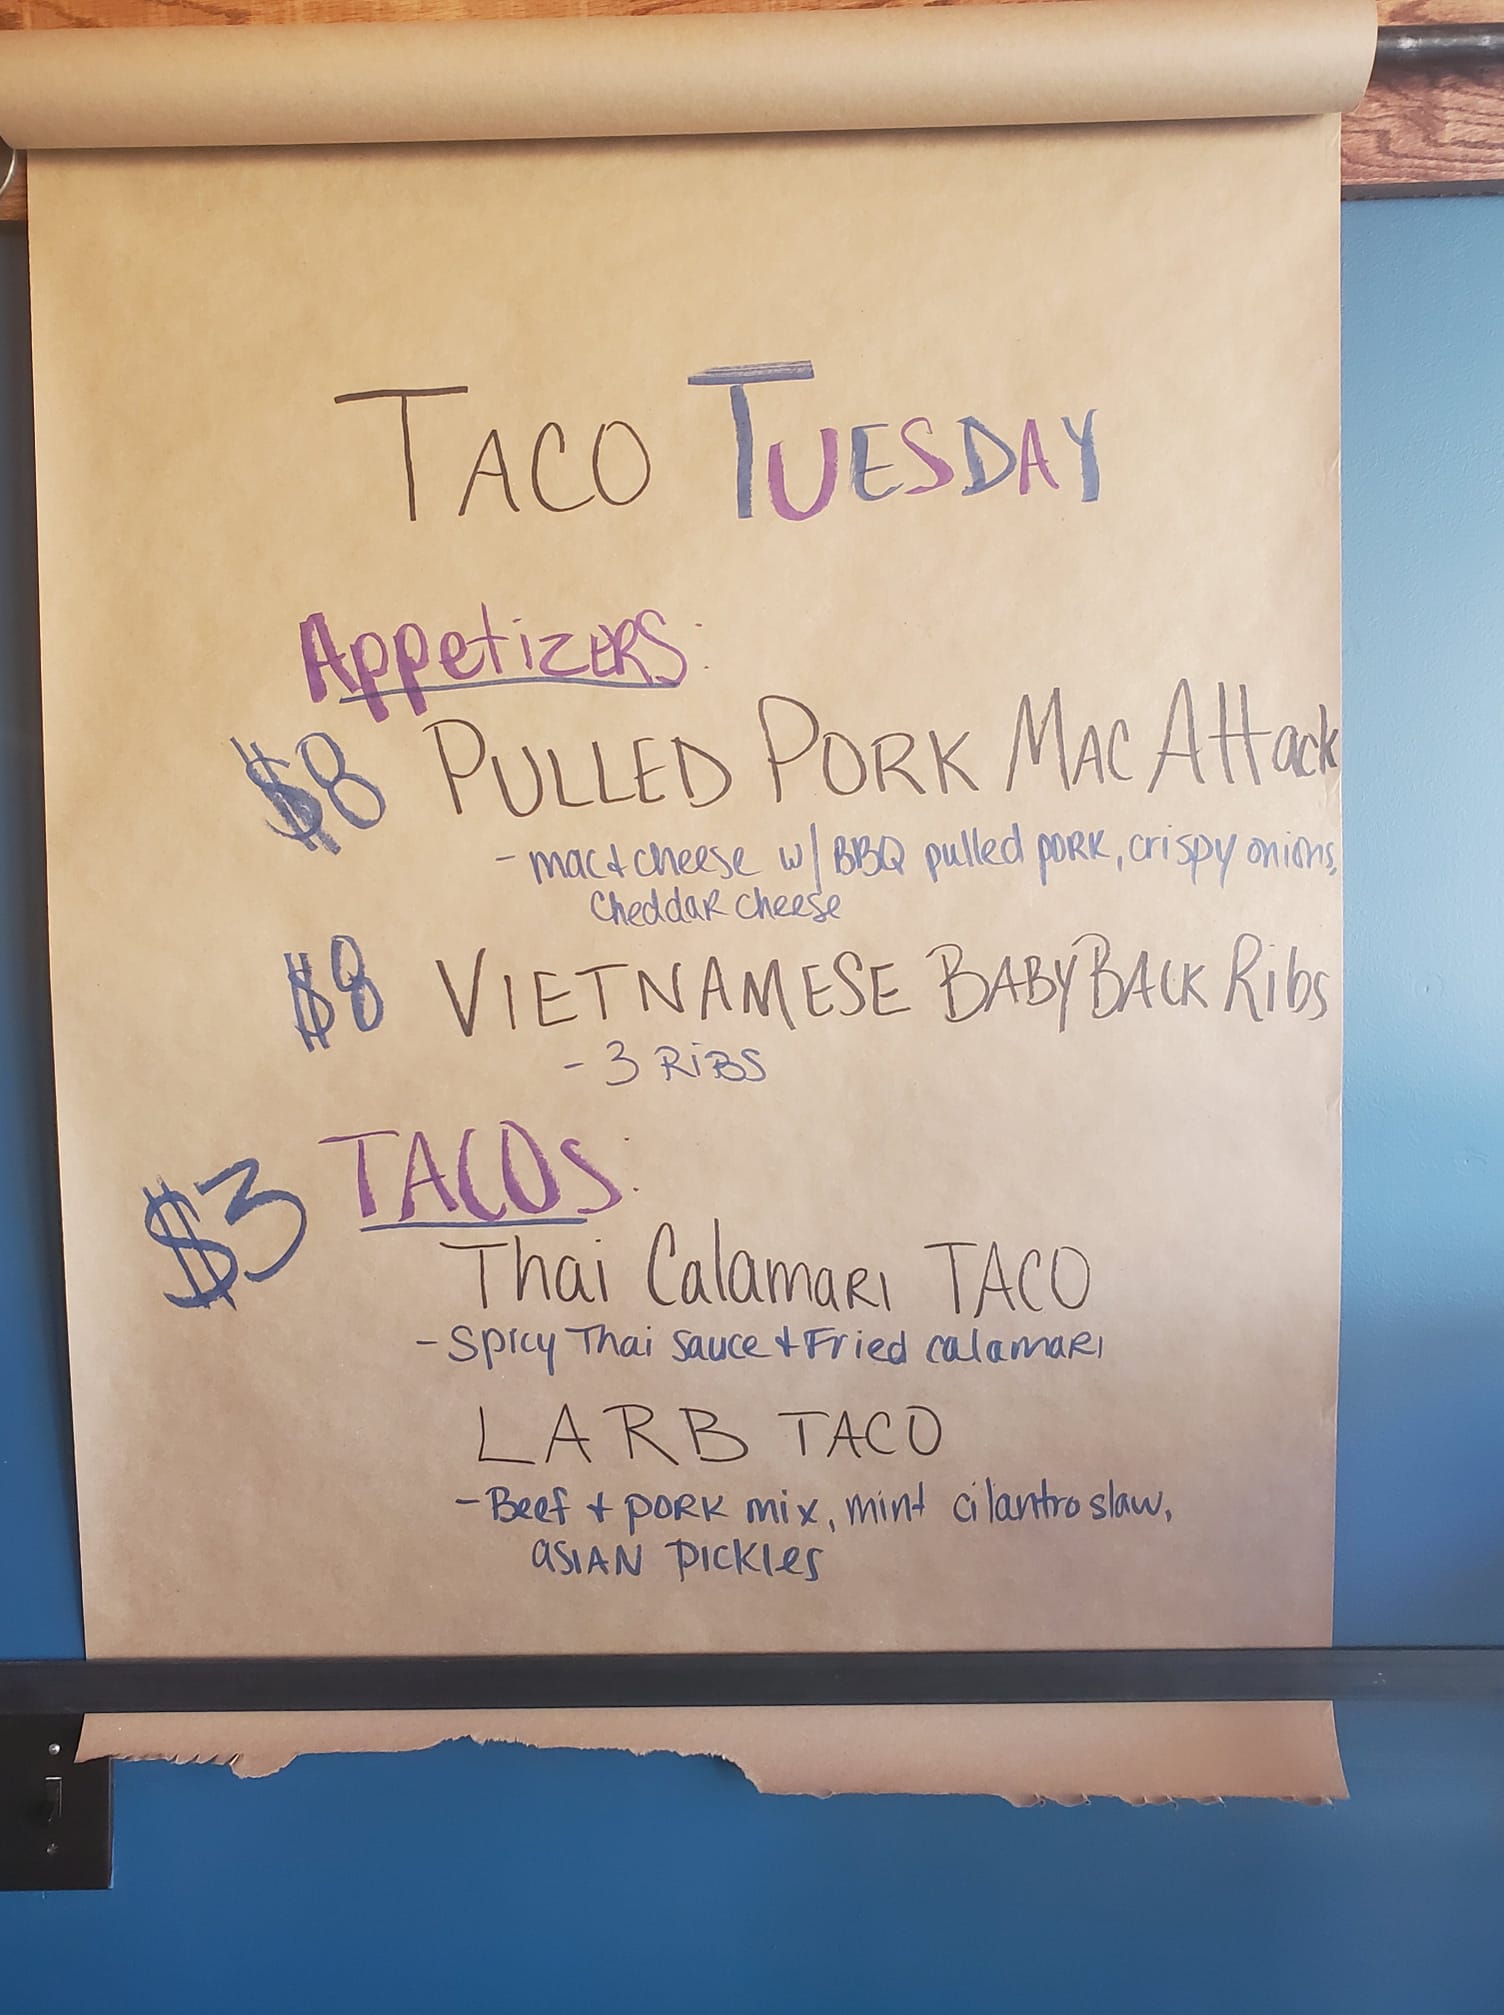 TACO TUESDAY
Appetizers:
$8 PULLED PORK MAC Attack
- mac + cheese w/ BBQ pulled pork, crispy onions,
cheddar cheese
$8 VIETNAMESE BABY BACK Ribs
- 3 Ribs
$3 TACOs:
Thai Calamari TACO
- Spicy Thai sauce + Fried calamari
LARB TACO
- Beef + pork mix, mint cilantro slaw,
asian pickles